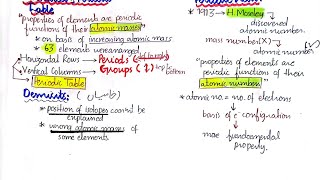 Table
"properties of elements are periodic
functions of their atomic masses"
* on basis of increasing atomic mass
* 63 elements were arranged
Horizontal Rows → Periods
Vertical Columns → Groups (↓) top to bottom
Periodic Table
Demerits:
* position of isotopes can't be
explained
* wrong atomic masses of
some elements
* 1913 → H. Moseley
↓ discovered
atomic number
mass number (X) → atomic number (✓)
"properties of elements are
periodic functions of their
atomic number"
* atomic no. = no. of electrons
↓
basis of e⁻ configuration
↓
more fundamental
property.